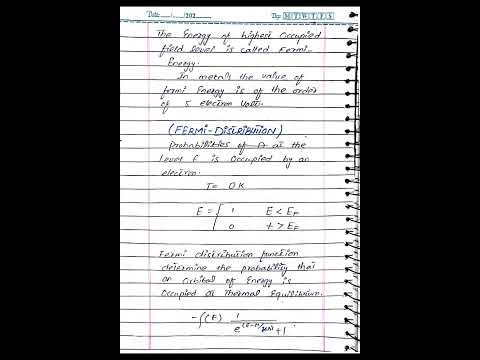 Date __/__/202__ Day: M T W T F S
The Energy of highest Occupied
field level is called Fermi-
Energy.
In metals the value of
fermi Energy is of the order
of 5 electron Volt.
(FERMI-DISTRIBUTION)
Probabilities of at the
Level E is Occupied by an
electron.
T = 0 K
E = { 1 E < EF
0 + > EF
Fermi distribution function
determine the probability that
an orbital of Energy is
Occupied at Thermal Equilibrium.
1
e +1